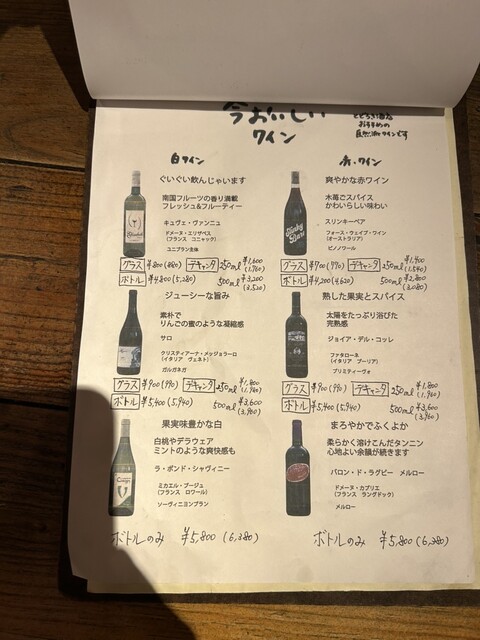 今おいしい
ワイン
おすすめの
自然派ワインです
白ワイン
ぐいぐい飲んじゃいます
南国フルーツの香り満載
フレッシュ&フルーティー
キュヴェ・ヴァンニュ
ドメーヌ・エリザベス
(フランス コニャック)
ユニブラン主体
グラス ¥800(880) デキャンタ 250ml ¥1,600
(1,760)
ボトル ¥4,800(5,280) 500ml ¥3,200
(3,520)
ジューシーな旨み
素朴で
りんごの蜜のような凝縮感
サロ
クリスティアーナ・メッジョラーロ
(イタリア ヴェネト)
ガルガネガ
グラス ¥900(990) デキャンタ 250ml ¥1,800
(1,980)
ボトル ¥5,400(5,940) 500ml ¥3,600
(3,960)
果実味豊かな白
白桃やデラウェア
ミントのような爽快感も
ラ・ポンド・シャヴィニー
ミカエル・ブージュ
(フランス ロワール)
ソーヴィニヨンブラン
ボトルのみ ¥5,800(6,380)
赤ワイン
爽やかな赤ワイン
木苺ごスパイス
かわいらしい味わい
スリンキーベア
フォース・ウェイブ・ワイン
(オーストラリア)
ピノノワール
グラス ¥700(770) デキャンタ 250ml ¥1,400
(1,540)
ボトル ¥4,200(4,620) 500ml ¥2,800
(3,080)
熟した果実とスパイス
太陽をたっぷり浴びた
完熟感
ジョイア・デル・コッレ
ファタローネ
(イタリア プーリア)
プリミティーヴォ
グラス ¥900(990) デキャンタ 250ml ¥1,800
(1,980)
ボトル ¥5,400(5,940) 500ml ¥3,600
(3,960)
まろやかでふくよか
柔らかく溶けこんだタンニン
心地よい余韻が続きます
バロン・ド・ラグビー メルロー
ドメーヌ・カブリエ
(フランス ラングドック)
メルロー
ボトルのみ ¥5,800(6,380)